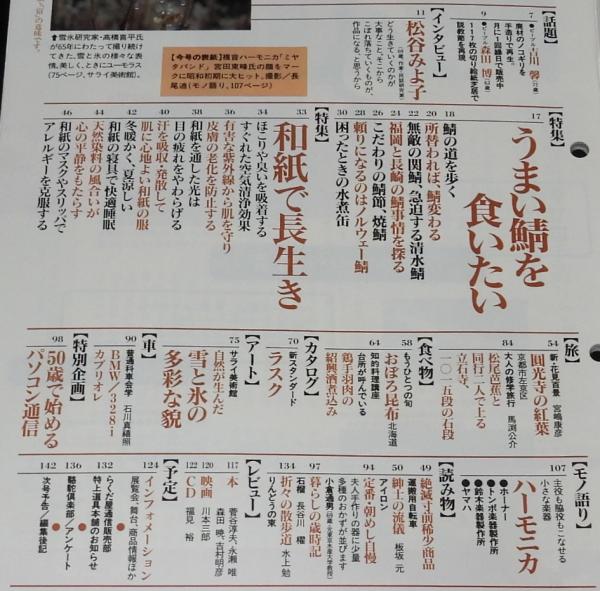 【話題】
7
ピープル❶
川 馨
廃材のノコギリを
手造りで再生。
月に1回縁日で販売中
9
ピープル❷
森田 博
111枚の切り絵紙芝居で
説教節を再現
【インタビュー】
11
松谷みよ子
どう生きていくのかが
大事なこと。そこから
こぼれ落ちていくものが、
作品になる、と思うから
⬆雪氷研究家・高橋喜平氏
が65年にわたって撮り続け
てきた、雪と氷の様々な表
情。美しく、ときにユーモラス
(75ページ、サライ美術館)。
【今号の表紙】複音ハーモニカ「ミヤ
タバンド」。宮田東峰氏の顔をマー
クに昭和初期に大ヒット。撮影/長
尾迪(モノ語り、107ページ)
【特集】
17
うまい鯖を
食いたい
18
鯖の道を歩く
20
所替われば、鯖変わる
22
無敵の関鯖、急迫する清水鯖
24
福岡と長崎の鯖事情を探る
26
こだわりの鯖節・焼鯖
28
頼りになるのはノルウェー鯖
30
困ったときの水煮缶
【特集】
33
和紙で長生き
34
ほこりや臭いを吸着する
35
すぐれた空気清浄効果
36
有害な紫外線から肌を守り
皮膚の老化を防止する
38
和紙を通した光は
目の疲れをやわらげる
40
汗を吸収・発散して
肌に心地よい和紙の服
42
冬暖かく、夏涼しい
和紙の寝具で快適睡眠
44
天然染料の風合いが
心の平静をもたらす
46
和紙のマスクやスリッパで
アレルギーを克服する
【旅】
54
新・花見百景
宮嶋康彦
圓光寺の紅葉
京都市左京区
84
大人の修学旅行
馬渕公介
松尾芭蕉と
同行二人で上る
立石寺、
一〇一五段の石段
【食べ物】
58
もうひとつの旬
おぼろ昆布
北海道
64
知的料理講座
台所が呼んでいる
鶏手羽肉の
紹興酒煮込み
【カタログ】
70
新スタンダード
ラスク
【アート】
75
サライ美術館
自然が生んだ
雪と氷の
多彩な貌
【車】
90
普通科車会学
石川真禧照
BMW/328i
カブリオレ
【特別企画】
98
50歳で始める
パソコン通信
【モノ語り】
107
主役も脇役もこなせる
小さな楽器
ハーモニカ
●ホーナー
●トンボ楽器製作所
●鈴木楽器製作所
●ヤマハ
【読み物】
49
絶滅寸前稀少商品
運搬用自転車
50
紳士の流儀
板坂 元
アイロン
94
定番・朝めし自慢
夫人手作りの器に少量
多種のおかずが並びます
小倉通男
97
暮らしの歳時記
石榴
長谷川 櫂
134
折々の散歩道
水上 勉
りんどうの束
【レビュー】
117
本
菅谷淳夫、永瀬 唯
森田 暁、吉村明彦
120
映画
川本三郎
122
CD
福見 裕
【予定】
124
インフォメーション
展覧会、舞台、商品情報ほか
132
●らくだ屋通信販売部
特上道具本舗のお知らせ
136
●駱駝倶楽部/アンケート
142
●次号予告/編集後記